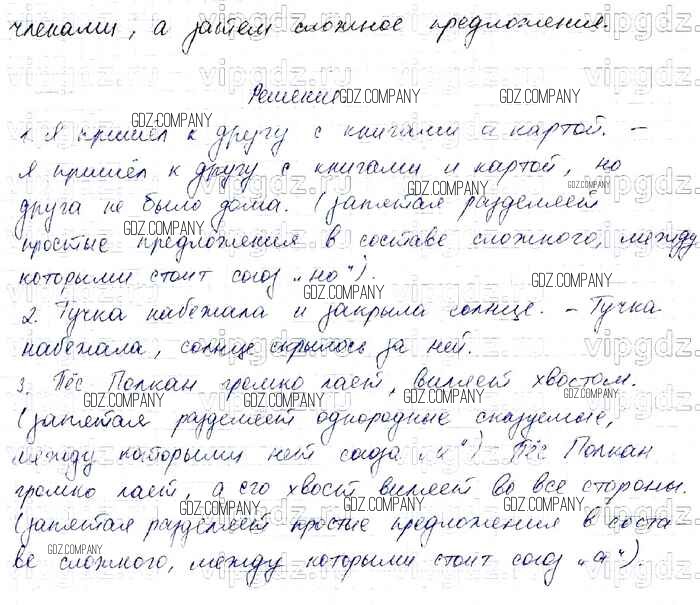 членами, а затем сложное предложения.
Решение
1. Я пришёл к другу с книгами и картой. –
Я пришёл к другу с книгами и картой, но
друга не было дома. (запятая разделяет
простые предложения в составе сложного, между
которыми стоит союз „но“).
2. Тучка набежала и закрыла солнце. – Тучка
набежала, солнце скрылось за ней.
3. Пёс Полкан громко лает, виляет хвостом.
(запятая разделяет однородные сказуемые,
между которыми нет союза „и“) Пёс Полкан
громко лает, а его хвост виляет во все стороны.
(запятая разделяет простые предложения в соста-
ве сложного, между которыми стоит союз „а“).
GDZ.COMPANY
vipgdz.ru